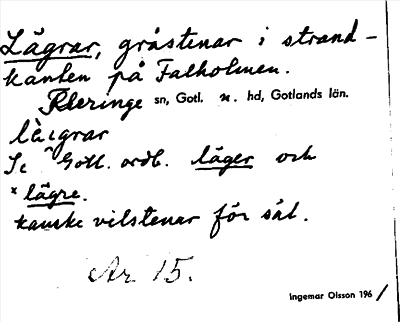 Lägrar, gråstenar i strand-
kanten på Falholmen.
Kleringe sn, Gotl. n. hd, Gotlands län.
Se Gotl. ordb. läger och
x lägre.
kanske vilstenar för säl.
Ar. 15.
Ingemar Olsson 196 /